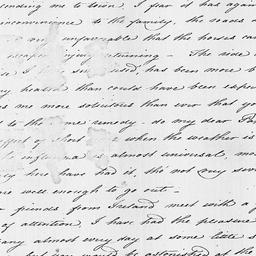 ending me to town. I fear it has again
inconvenience to the family, the roads a
so unfavorable that the horses can
escape injury returning - The ride
used, has been more b
my health than could have been expec
es me more solicitous than ever that yo
t to the same remedy - do my dear
effect of short when the weather is
influenza is almost universal, mo
y here have had it, tho not my seve
are well enough to go out -
r friends from Ireland meet with a g
of attention, I have had the pleasure
any almost every day at some little s
but you would be astonished at the